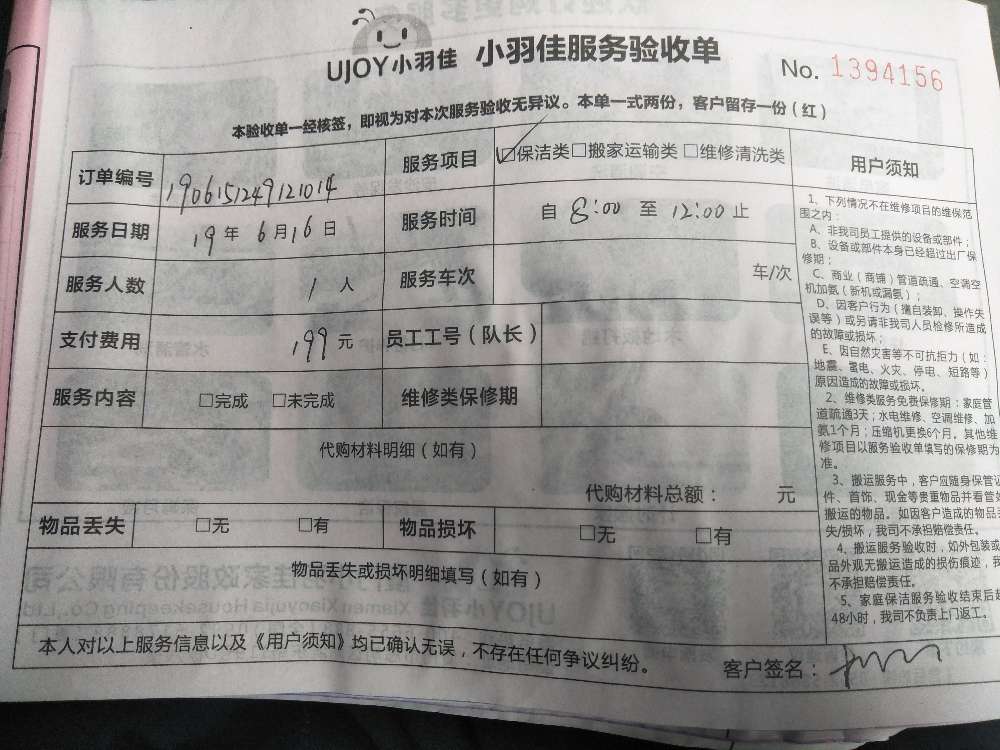 UJOY小羽佳 小羽佳服务验收单 No. 1394156
本验收单一经核签，即视为对本次服务验收无异议。本单一式两份，客户留存一份（红）
订单编号 1906151249121014 服务项目 ☑保洁类□搬家运输类 □维修清洗类
服务日期 19年 6月16日 服务时间 自 8:00 至 12:00 止
服务人数 1 人 服务车次 车/次
支付费用 199 元 员工工号（队长）
服务内容 □完成 □未完成 维修类保修期
代购材料明细（如有）
代购材料总额： 元
物品丢失 □无 □有 物品损坏 □无 □有
物品丢失或损坏明细填写（如有）
本人对以上服务信息以及《用户须知》均已确认无误，不存在任何争议纠纷。
客户签名：
用户须知
1、下列情况不在维修项目的维保范
围之内：
A、非我司员工提供的设备或部件；
B、设备或部件本身已经超过出厂保
修期；
C、商业（商铺）管道疏通、空调空
机加氨（新机或漏氨）；
D、因客户行为（擅自装卸、操作失
误等）或另请非我司人员检修所造成
的故障或损坏；
E、因自然灾害等不可抗拒力（如：
地震、雷电、火灾、停电、短路等）
原因造成的故障或损坏。
2、维修类服务免费保修期：家庭管
道疏通3天；水电维修、空调维修、加
氨1个月；压缩机更换6个月。其他维
修项目以服务验收单填写的保修期为
准。
3、搬运服务中，客户应随身保管证
件、首饰、现金等贵重物品并看管
搬运的物品。如因客户造成的物品丢
失/损坏，我司不承担赔偿责任。
4、搬运服务验收时，如外包装或
品外观无搬运造成的损伤痕迹，我
不承担赔偿责任。
5、家庭保洁服务验收结束后超
48小时，我司不负责上门返工。